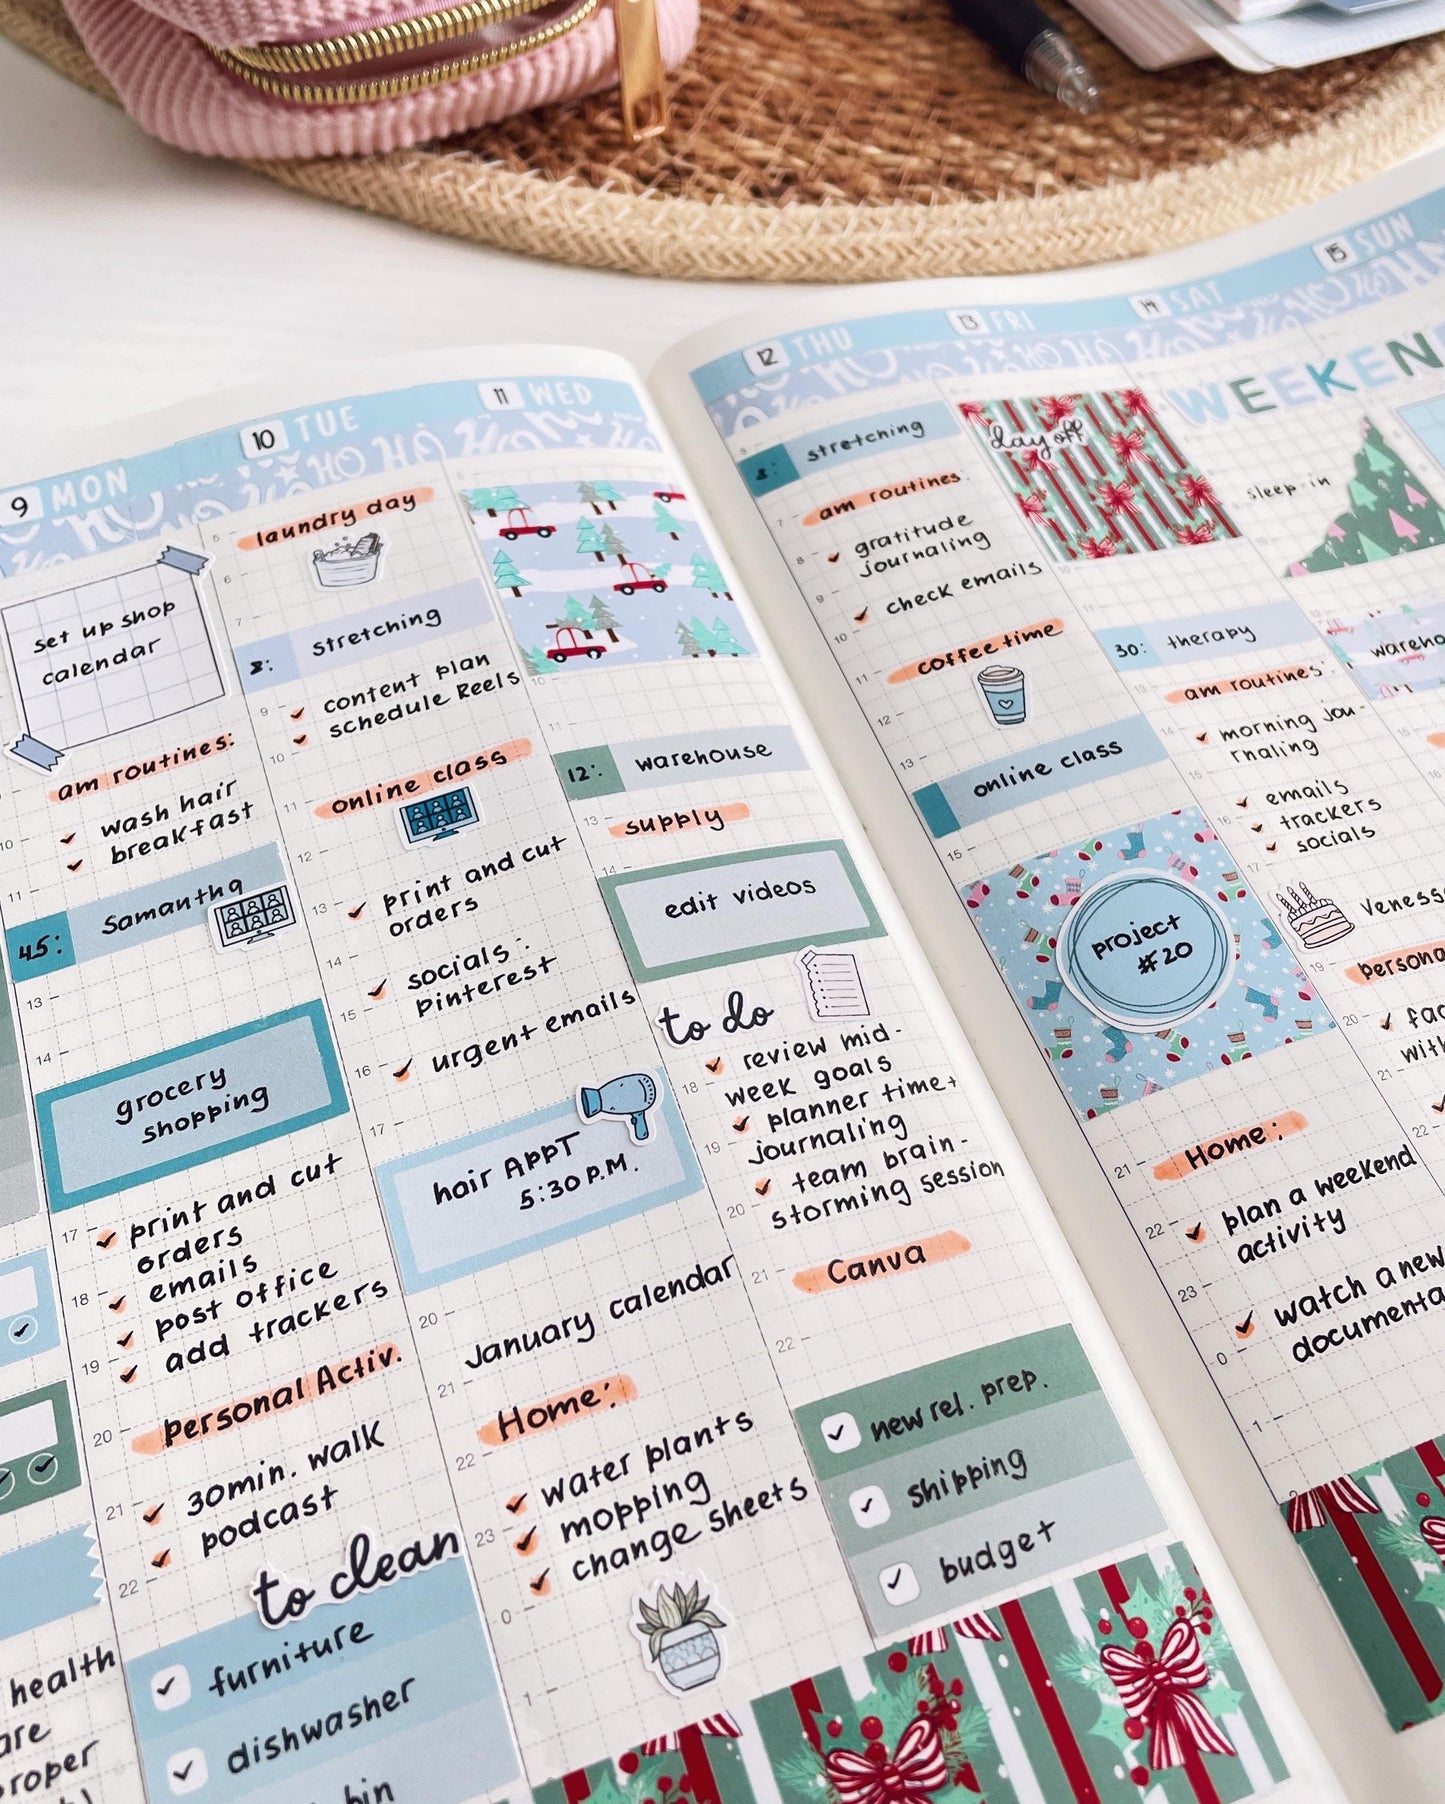 9 MON
set up shop
calendar
am routines:
wash hair
breakfast
45: Samantha
grocery
shopping
print and cut
orders
emails
post office
add trackers
Personal Activ.
30min. walk
podcast
to clean
furniture
dishwasher
bin
health
10 TUE
laundry day
8: stretching
content plan
schedule Reels
online class
print and cut
orders
socials:
pinterest
urgent emails
hair APPT
5:30 P.M.
January calendar
Home:
water plants
mopping
change sheets
11 WED
12: warehouse
supply
edit videos
to do
review mid-
week goals
planner time+
journaling
team brain-
storming session
Canva
new rel. prep.
shipping
budget
12 THU
8: stretching
am routines:
gratitude
journaling
check emails
coffee time
online class
project
#20
Home:
plan a weekend
activity
watch a new
documenta
13 FRI
day off
30: therapy
am routines:
morning jou-
rnaling
emails
trackers
socials
Veness
persona
14 SAT
WEEKEN
sleep-in
wareho
15 SUN